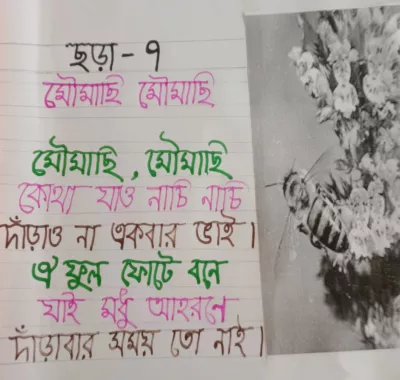 ছড়া - ৭
মৌমাছি মৌমাছি
মৌমাছি, মৌমাছি
কোথা যাও নাচি নাচি
দাঁড়াও না একবার ভাই।
ঐ ফুল ফোটে বনে
যাই মধু আহরণে
দাঁড়াবার সময় তো নাই।